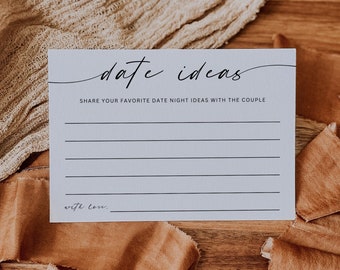 date ideas
SHARE YOUR FAVORITE DATE NIGHT IDEAS WITH THE COUPLE
with love